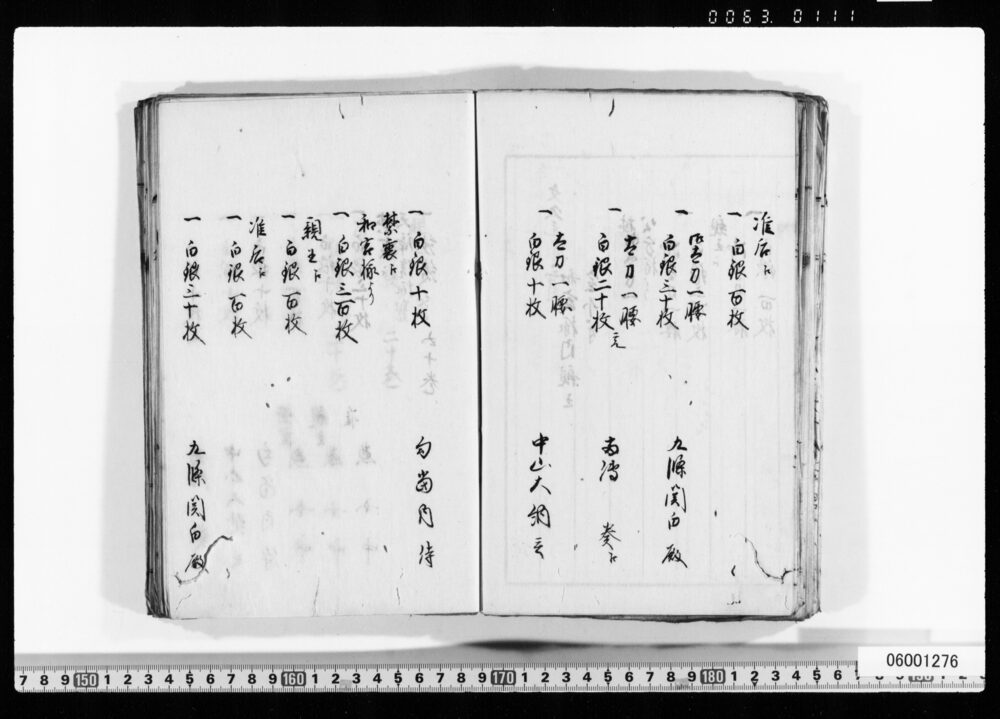 0063. 0111
准后に
一 白銀百枚
御太刀一腰
一 白銀三十枚 九條関白殿
一 太刀一腰
白銀二十枚 両傳奏に
一 太刀一腰
白銀十枚 中山大納言
一 白銀十枚 勾當内侍
禁裏に
和宮様より
一 白銀三百枚
親王に
一 白銀百枚
准后に
一 白銀百枚
一 白銀三十枚 九條関白殿
06001276
7 8 9 150 1 2 3 4 5 6 7 8 9 160 1 2 3 4 5 6 7 8 9 170 1 2 3 4 5 6 7 8 9 180 1 2 3 4 5 6